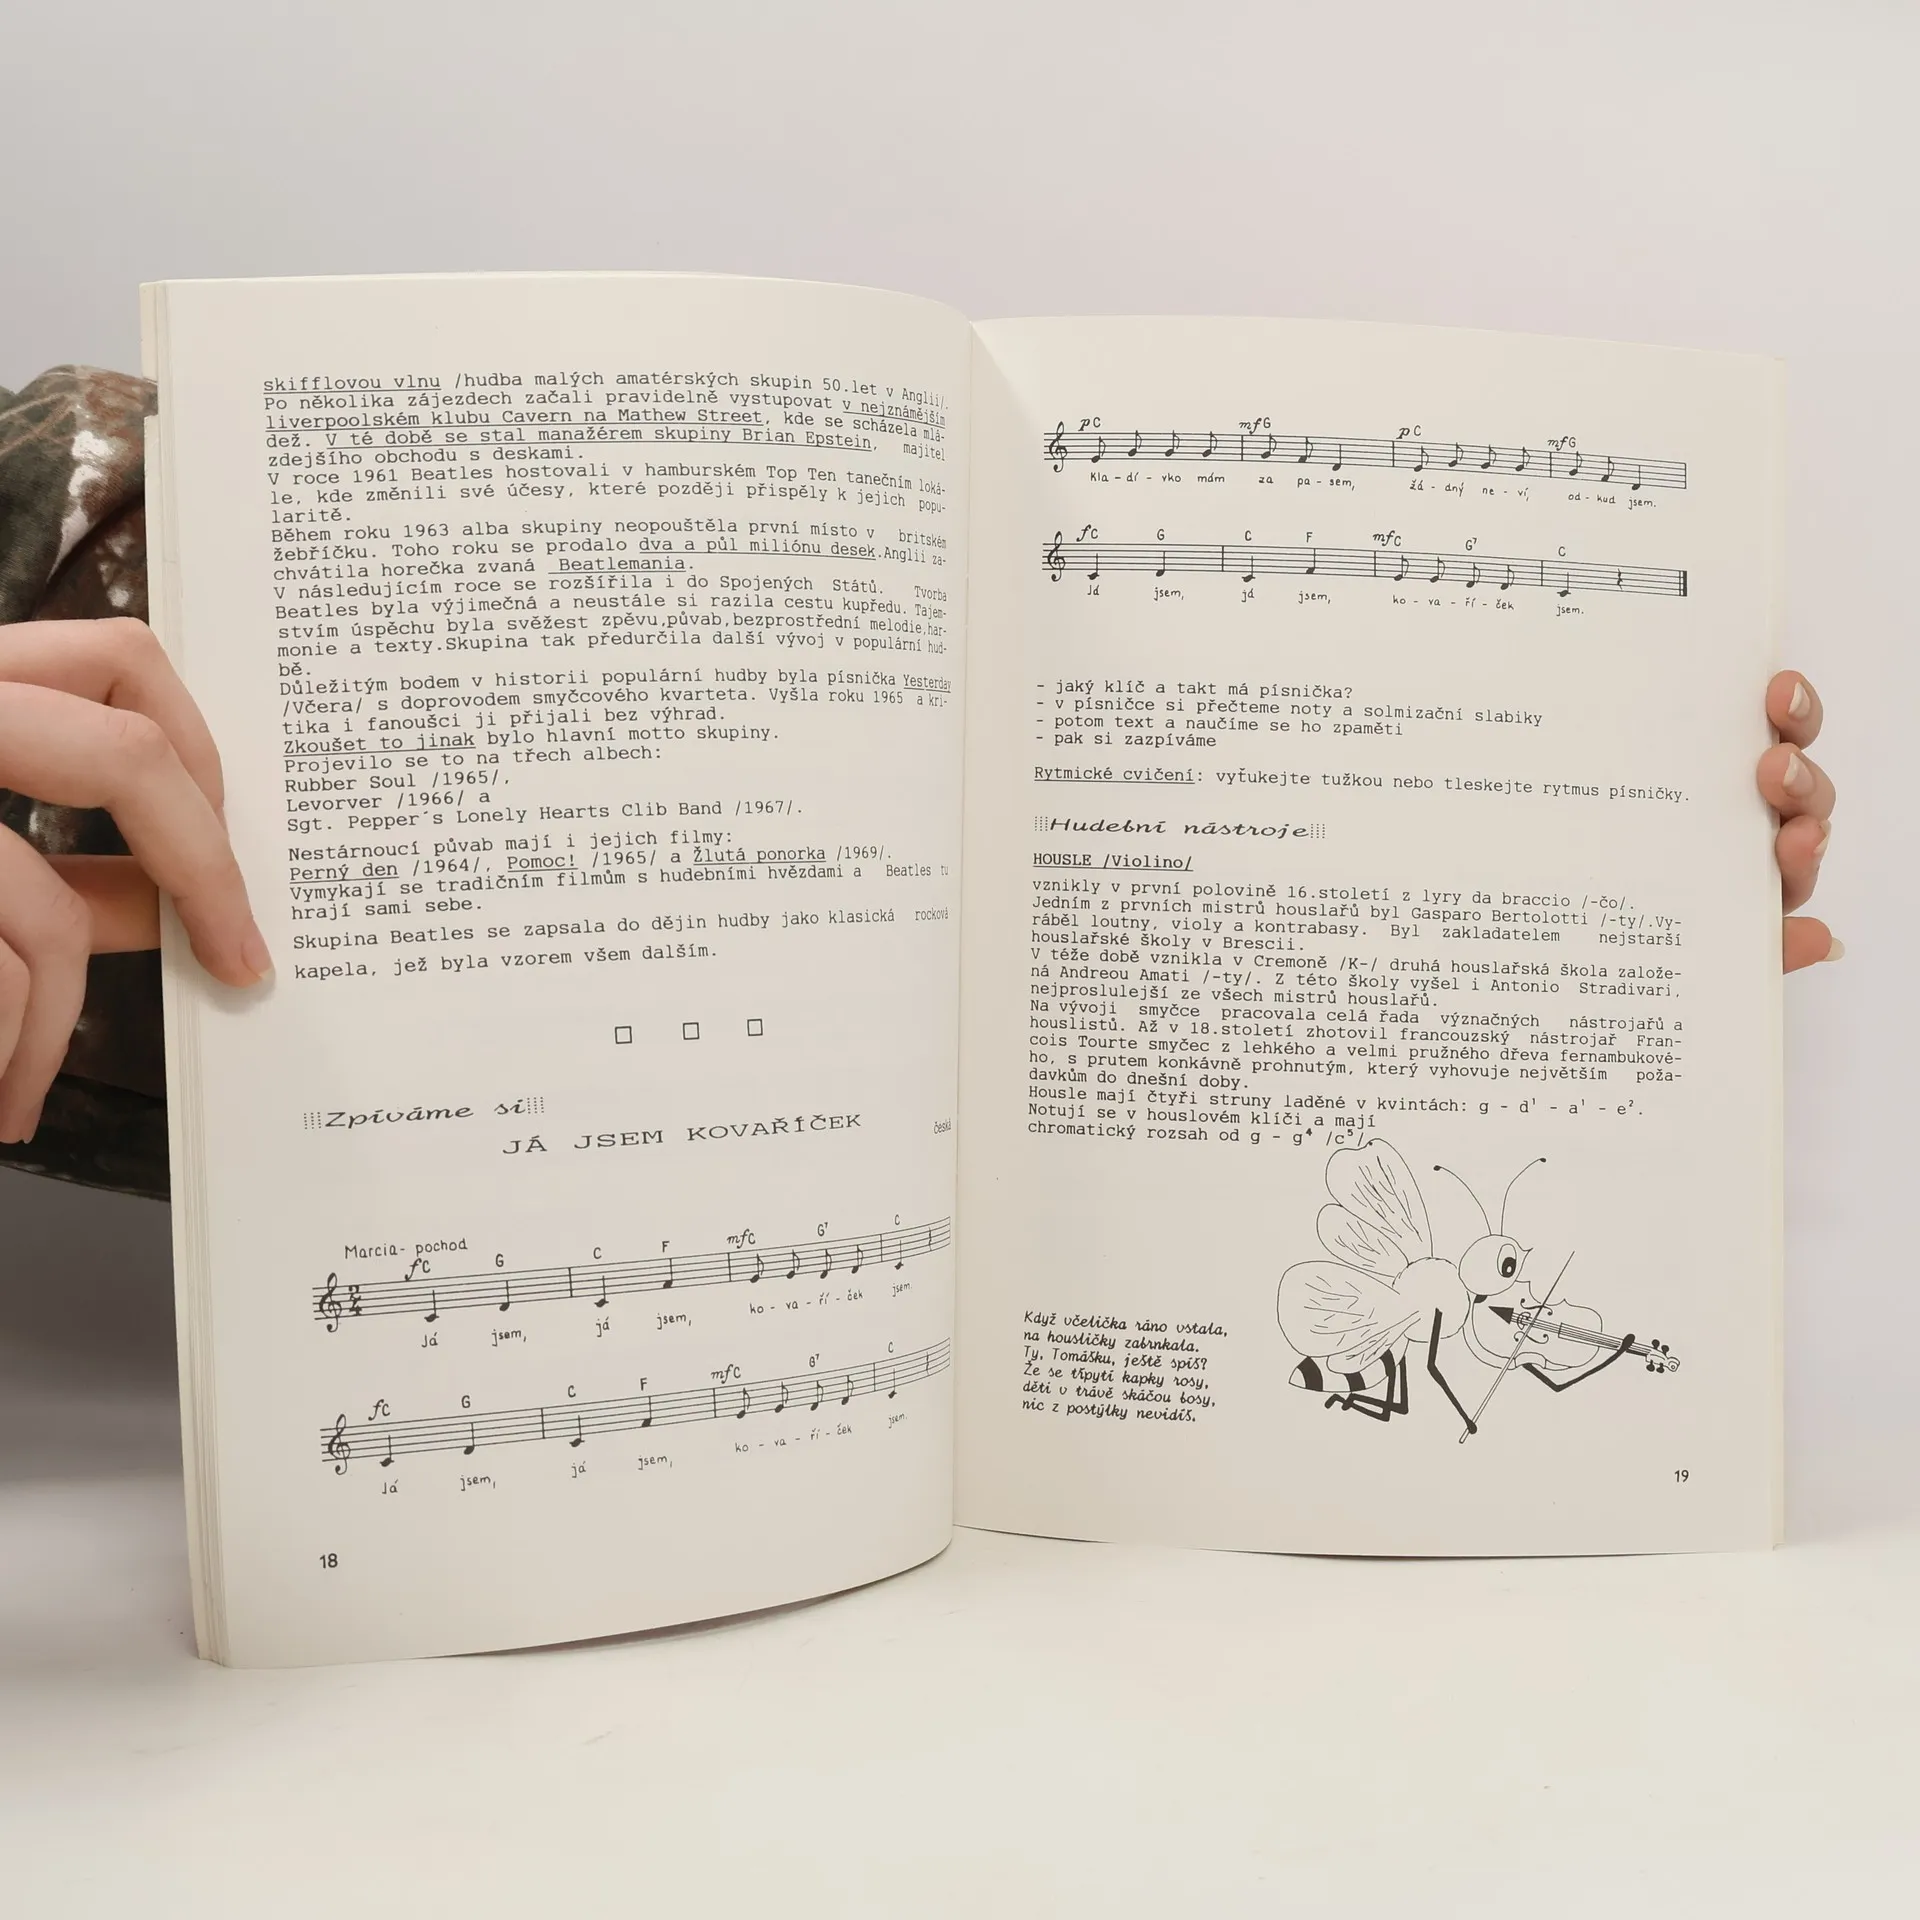 skifflovou vlnu /hudba malých amatérských skupin 50.let v Anglii/.
Po několika zájezdech začali pravidelně vystupovat v nejznámějším
liverpoolském klubu Cavern na Mathew Street, kde se scházela mlá-
dež. V té době se stal manažérem skupiny Brian Epstein, majitel
zdejšího obchodu s deskami.
V roce 1961 Beatles hostovali v hamburském Top Ten tanečním loká-
le, kde změnili své účesy, které později přispěly k jejich popu-
laritě.
Během roku 1963 alba skupiny neopouštěla první místo v britském
žebříčku. Toho roku se prodalo dva a půl miliónu desek.Anglii za-
chvátila horečka zvaná Beatlemania.
V následujícím roce se rozšířila i do Spojených Států. Tvorba
Beatles byla výjimečná a neustále si razila cestu kupředu. Tajem-
stvím úspěchu byla svěžest zpěvu,půvab,bezprostřední melodie,har-
monie a texty.Skupina tak předurčila další vývoj v populární hud-
bě.
Důležitým bodem v historii populární hudby byla písnička Yesterday
/Včera/ s doprovodem smyčcového kvarteta. Vyšla roku 1965 a kri-
tika i fanoušci ji přijali bez výhrad.
Zkoušet to jinak bylo hlavní motto skupiny.
Projevilo se to na třech albech:
Rubber Soul /1965/,
Levorver /1966/ a
Sgt. Pepper´s Lonely Hearts Clib Band /1967/.
Nestárnoucí půvab mají i jejich filmy:
Perný den /1964/, Pomoc! /1965/ a Žlutá ponorka /1969/.
Vymykají se tradičním filmům s hudebními hvězdami a Beatles tu
hrají sami sebe.
Skupina Beatles se zapsala do dějin hudby jako klasická rocková
kapela, jež byla vzorem všem dalším.
Zpíváme si
JÁ JSEM KOVAŘÍČEK
česká
Marcia - pochod
f C G C F mf C G⁷ C
2/4
Já jsem, já jsem, ko - va - ří - ček jsem.
f C G C F mf C G⁷ C
Já jsem, já jsem, ko - va - ří - ček jsem.
18
p C mf G p C mf G
Kla - dí - vko mám za pa - sem, žá - dný ne - ví, od - kud jsem.
f C G C F mf C G⁷ C
Já jsem, já jsem, ko - va - ří - ček jsem.
- jaký klíč a takt má písnička?
- v písničce si přečteme noty a solmizační slabiky
- potom text a naučíme se ho zpaměti
- pak si zazpíváme
Rytmické cvičení: vyťukejte tužkou nebo tleskejte rytmus písničky.
Hudební nástroje
HOUSLE /Violino/
vznikly v první polovině 16.století z lyry da braccio /-čo/.
Jedním z prvních mistrů houslařů byl Gasparo Bertolotti /-ty/.Vy-
ráběl loutny, violy a kontrabasy. Byl zakladatelem nejstarší
houslařské školy v Brescii.
V téže době vznikla v Cremoně /K-/ druhá houslařská škola založe-
ná Andreou Amati /-ty/. Z této školy vyšel i Antonio Stradivari,
nejproslulejší ze všech mistrů houslařů.
Na vývoji smyčce pracovala celá řada význačných nástrojařů a
houslistů. Až v 18.století zhotovil francouzský nástrojař Fran-
cois Tourte smyčec z lehkého a velmi pružného dřeva fernambukové-
ho, s prutem konkávně prohnutým, který vyhovuje největším poža-
davkům do dnešní doby.
Housle mají čtyři struny laděné v kvintách: g - d¹ - a¹ - e².
Notují se v houslovém klíči a mají
chromatický rozsah od g - g⁴ /c⁵/.
Když včelička ráno vstala,
na housličky zabrnkala.
Ty, Tomášku, ještě spíš?
Že se třpytí kapky rosy,
děti v trávě skáčou bosy,
nic z postýlky nevidíš.
19